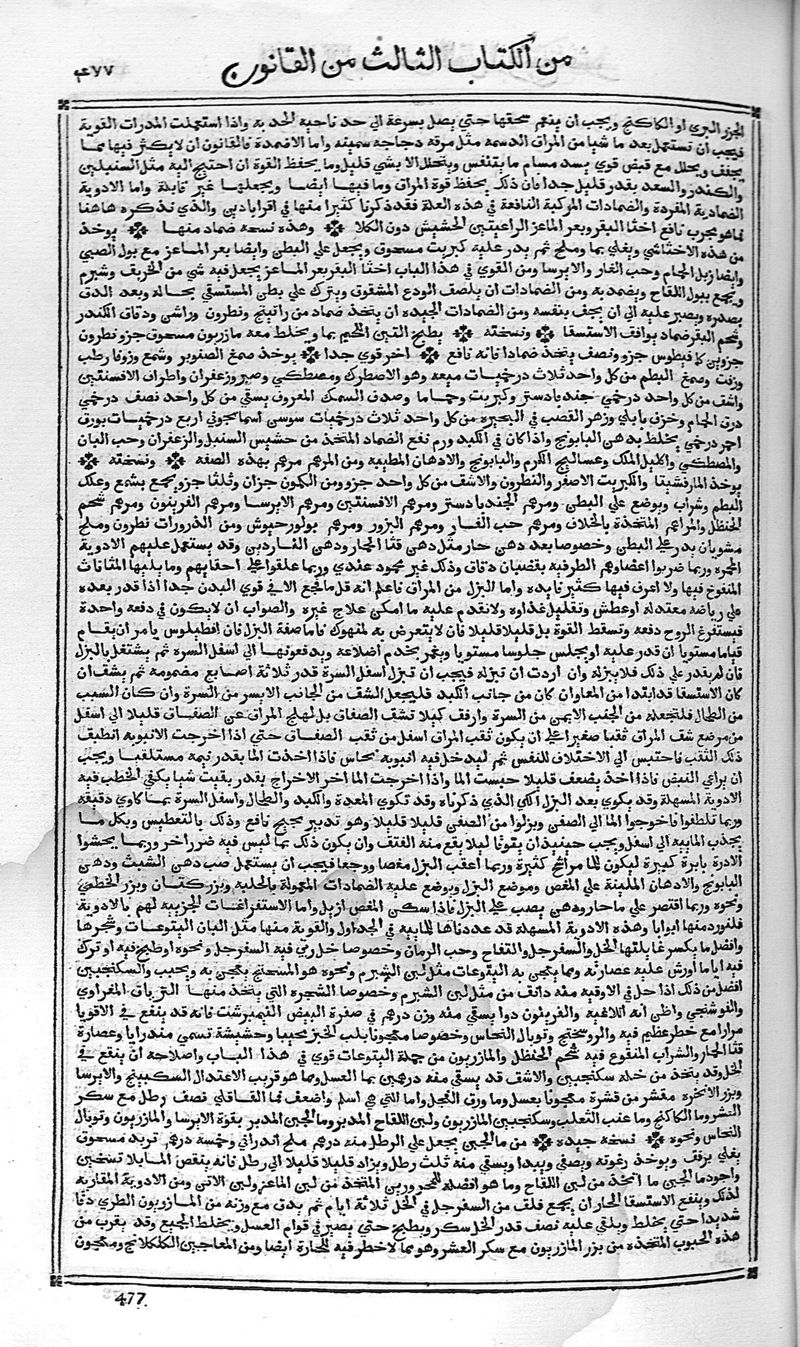 من الكتاب الثالث من القانون
٤٧٧
الجزر البري او الكاكنج ويجب ان ينعم سحقها حتي يصل بسرعة الي حد ناحيه الحدبه واذا استعملت المدرات القوية
فيجب ان تستعمل بعدها شيا من المراق الدسمه مثل مرقة دجاجه سمينه واما الاضمدة بالقانون ان لا يكثر فيها مما
يجفف ويحلل مع قبض قوي يسد مسام ما يتنفس ويتحلل الا بشي قليل وما يحفظ القوة ان احتيج اليه مثل السنبلين
والكندر والسعد بقدر قليل جدا فان ذلك يحفظ قوة المراق وما فيها ايضا ويجعلها غير قابلة واما الادوية
الضمادية المفردة والضمادات المركبة النافعة في هذه العلة فقد ذكرنا كثيرا منها في اقراباديين والذي نذكره هاهنا
مما هو مجرب نافع اخثا البقر وبعر الماعز الراعيتين الحشيش دون الكلا وهذه نسخه ضماد منها يوخذ
من هذه الاختاشي ويغلي بما وملح ثم يذر عليه كبريت مسحوق ويجعل علي البطن وايضا بعر الماعز مع بول الصبي
وايضا زبل الحمام وحب الغار والايرسا ومن القوي في هذا الباب اخثا البقر بعر الماعز يجعل فيه شي من الخربق وشبرم
ويجمع ببول اللقاح ويضمد به ومن الضمادات ان يلصق الودع المشقوق ويترك علي بطن المستسقي بحاله وبعد الدق
بصدره ويصبر عليه الي ان يجف بنفسه ومن الضمادات الجيده ان يتخذ ضماد من راتينج ونطرون وراشي ودقاق الكندر
وشحم البقر ضماد يوافق الاستسقا ونسخته يطبخ التين اللحيم بما ويخلط معه مازريون مسحوق جزو نطرون
جزوين كمافيطوس جزو ونصف يتخذ ضمادا فانه نافع اخر قوي جدا يوخذ صمغ الصنوبر وشمع وزوفا رطب
وزفت وصمغ البطم من كل واحد ثلاث درخميات ميعه وهو الاصطرك ومصطكي وصبر وزعفران واطراف الافسنتين
واشق من كل واحد درخمي جندبادستر وكبريت وحماما وصدف السمك المعروف بسقي من كل واحد نصف درخمي
درق الحمام وخزف بابلي وزهر القصب في البحيرة من كل واحد ثلاث درخميات سوسن اسمانجوني اربع درخميات بورق
احمر درخمي يخلط بدهن البابونج واذا كان في الكبد ورم نفع الضماد المتخذ من حشيش السنبل والزعفران وحب البان
والمصطكي واكليل الملك وعساليج الكرم والبابونج والادهان المطيبه ومن المرهم مرهم بهذه الصفه ونسخته
يوخذ المارقشيتا والكبريت الاصفر والنطرون والاشق من كل واحد جزو ومن الكمون جزان وثلثا جزو يجمع بشمع وعلك
البطم وشراب ويوضع علي البطن ومرهم الجندبادستر ومرهم الافسنتين ومرهم الايرسا ومرهم الفربيون ومرهم شحم
الحنظل والمراهم المتخذة بالخلاف ومرهم حب الغار ومرهم البزور ومرهم بولورحيوش ومن الذرورات نطرون وملح
مشويان يذر علي البطن وخصوصا بعد دهن حار مثل دهن قثا الحمار ودهن الناردين وقد يستعمل عليهم الادوية
المحمرة وربما ضربوا اعضاوهم الطرفيه بقضبان دقاق وذلك غير محمود عندي وربما علقوا علي احقايهم وما يليها المثانات
المنفوخ فيها ولا اعرف فيها كثير فايده واما البزل من المراق فاعلم انه قل ما نجع الا في قوي البدن جدا اذا قدر بعده
علي رياضه معتدله او عطش وتقليل غذاوه ولا نقدم عليه ما امكن علاج غيره والصواب ان لا يكون في دفعه واحدة
فيستفرغ الروح دفعه وتسقط القوة بل قليلا قليلا فان لا يتعرض به لمنهوك فاما صفة البزل فان افطيلوس يامر ان يقام
قياما مستويا ان قدر عليه او يجلس جلوسا مستويا ويغمز بخدم اضلاعه ويدفعونها الي اسفل السره ثم يشتغل بالبزل
فان لم يقدر علي ذلك فلا يبزله وان اردت ان تبزله فيجب ان تبزل اسفل السرة قدر ثلاثة اصابع مضمومه ثم يشق ان
كان الاستسقا قد ابتدا من المعا وان كان من جانب الكبد فليجعل الشق من الجانب الايسر من السرة وان كان السبب
من الطحال فلتجعله من الجنب الايمن من السرة وارفق كيلا تشق الصفاق بل لهلج المراق عن الصفاق قليلا الي اسفل
من موضع شق المراق ثقبا صغيرا علي ان يكون ثقب المراق اسفل من ثقب الصفاق حتي اذا اخرجت الانبوبه انطبق
ذلك الثقب فاحتبس الي الاختلاف للنفس ثم ليدخل فيه انبوبه نحاس فاذا اخذت الما بقدر نيمه مستلقيا ويجب
ان يراعي النبض فاذا اخذ يضعف قليلا حبست الما واذا اخرجت الما اخر الاخراج بقدر بقيت شيا يكفي الخطب فيه
الادوية المسهلة وقد يكوي بعد البزل الكي الذي ذكرناه وقد تكوي المعدة والكبد والطحال واسفل السرة بمكاوي دقيقه
وربما تلطفوا فاخرجوا الما الي الصفن وبزلوا من الصفن قليلا قليلا وهو تدبير ناجح نافع وذلك بالتعطيس وبكل ما
يجذب المايه الي اسفل ويجب حينيذ ان يتوقا ليلا يقع منه الفتق وان يكون ذلك بما ليس فيه ضرر اخر وربما يخشوا
الادرة بابرة كبيرة ليكون للما مراشح كثيرة وربما اعقب البزل مغصا ووجعا فيجب ان يستعمل صب دهن الشبث ودهن
البابونج والادهان الملينة علي المغص وموضع البزل ويوضع عليه الضمادات المعمولة بالحلبه وبزر كتان وبزر الخطمي
ونحوه وربما اقتصر علي ما حار ودهن يصب علي البزل فاذا سكن المغص ازيل واما الاستفراغات الجزييه لهم بالادوية
فلنورد منها ابوابا وهذه الادوية المسهله قد عددناها للمايه في الجداول والقوية منها مثل البان اليتوعات وشجرها
وافضل ما يكسر غايلتها الخل والسفرجل والتفاح وحب الرمان وخصوصا خل ربي فيه السفرجل ونحوه او طبخ فيه او ترك
فيه اياما او رش عليه عصارته ومما يعجن به اليتوعات مثل لبن الشبرم ونحوه هو المسحنج يعجن به ويحبب والسكنجبين
افضل من ذلك اذا حل في الاوقيه منه دانق من مثل لبن الشبرم وخصوصا الشجره التي يتخذ منها الترياق المغراوي
والفوشنجي واظن انه اللاغيه والفربيون دوا يسقي منه وزن درهم في صفرة البيض النيمبرشت فانه قد ينفع في الاقويا
مرارا مع خطر عظيم فيه والروسختج وتوبال النحاس وخصوصا معجونا بلب الخبز محببا وحشيشة تسمي مندرايا وعصارة
قثا الحمار والشراب المنقوع فيه شحم الحنظل والمازريون من جملة اليتوعات قوي في هذا الباب واصلاحه ان ينقع في
الخل وقد يتخذ من خله سكنجبين والاشق قد يسقي منه درهمين بما العسل وما هو قريب الاعتدال السكبينج والايرسا
وبزر الانجره مقشر من قشره معجونا بعسل وما ورق الفجل واما التي هي اسلم واضعف فما القاقلي نصف رطل مع سكر
العشر وما الكاكنج وما عنب الثعلب وسكنجبين المازريون ولبن اللقاح المدبر وما الجبن المدبر بقوة الايرسا والمازريون وتوبال
النحاس ونحوه نسخه جيده من ما الجبن يجعل علي الرطل منه درهم ملح اندراني وخمسة درهم تربد مسحوق
يغلي برفق ويوخذ رغوته ويصفي ويبدا ويسقي منه ثلث رطل ويزاد قليلا قليلا الي رطل فانه ينقص الما بلا تسخين
واجودما الجبن ما اتخذ من لبن اللقاح وما هو افضله للمحرورين المتخذه من لبن الماعز ولبن الاتن ومن الادوية المقاربه
لذلك وينفع الاستسقا الحار ان يجمع فلق من السفرجل في الخل ثلاثة ايام ثم يدق مع وزنه من المازريون الطري دقا
شديدا حتي يختلط ويلقي عليه نصف قدر الخل سكر ويطبخ حتي يصير في قوام العسل ويخلط الجميع وقد يقرب من
هذه الحبوب المتخذه من بزر المازريون مع سكر العشر وهو مما لا خطر فيه للحارة ايضا ومن المعاجين الكلكلانج ومعجون
477.